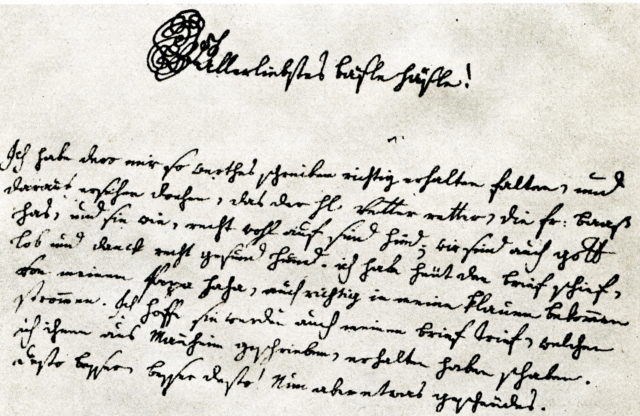 Allerliebstes bäsle häsle!
Ich habe dero mir so werthes schreiben richtig erhalten falten, und
daraus ersehen drehen, das der h: vetter retter, die fr: baaß
has, und sie wie, recht wohl auf sind hind; wir sind auch gott
lob und danck recht gesund hund. ich habe heüt den brief schief,
von meinem Papa haha, auch richtig in meine klauen bekommen
strommen. Ich hoffe sie werden auch meinen brief trief, welchen
ich ihnen aus Manheim geschrieben, erhalten haben schaben.
desto besser, besser desto! Nun aber etwas gescheüdes.